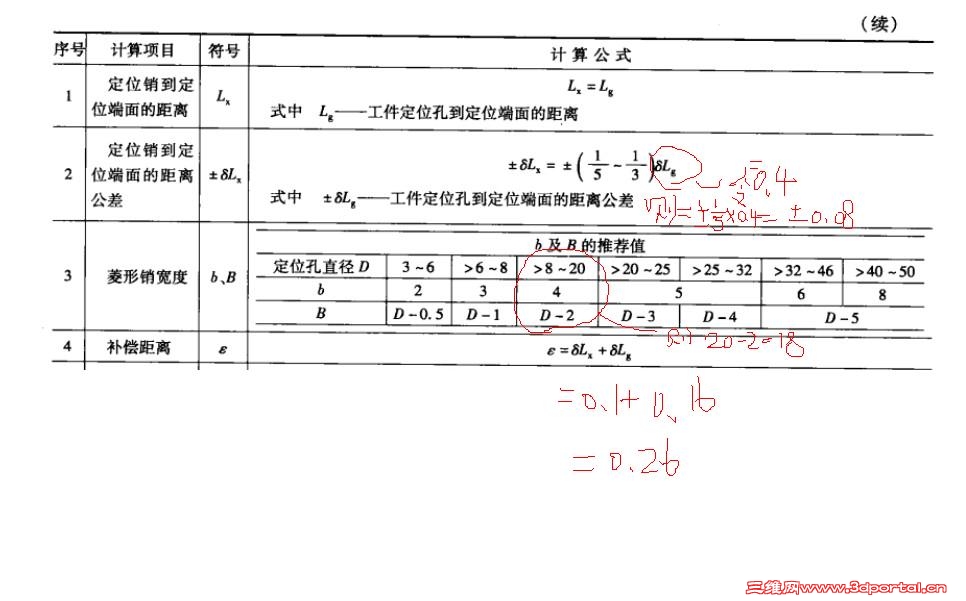 （续）
序号 计算项目 符号 计算公式
1 定位销到定位端面的距离 Lx Lx = Lg
式中 Lg——工件定位孔到定位端面的距离
2 定位销到定位端面的距离公差 ±δLx ±δLx = ±(1/5 ~ 1/3)δLg
式中 ±δLg——工件定位孔到定位端面的距离公差
0.4
则=±1/5×0.4=±0.08
3 菱形销宽度 b、B b及B的推荐值
定位孔直径D 3~6 >6~8 >8~20 >20~25 >25~32 >32~46 >40~50
b 2 3 4 5 6 8
B D-0.5 D-1 D-2 D-3 D-4 D-5
则 20-2=18
4 补偿距离 ε ε=δLx+δLg
=0.1+0.16
=0.26
三维网www.3dportal.cn